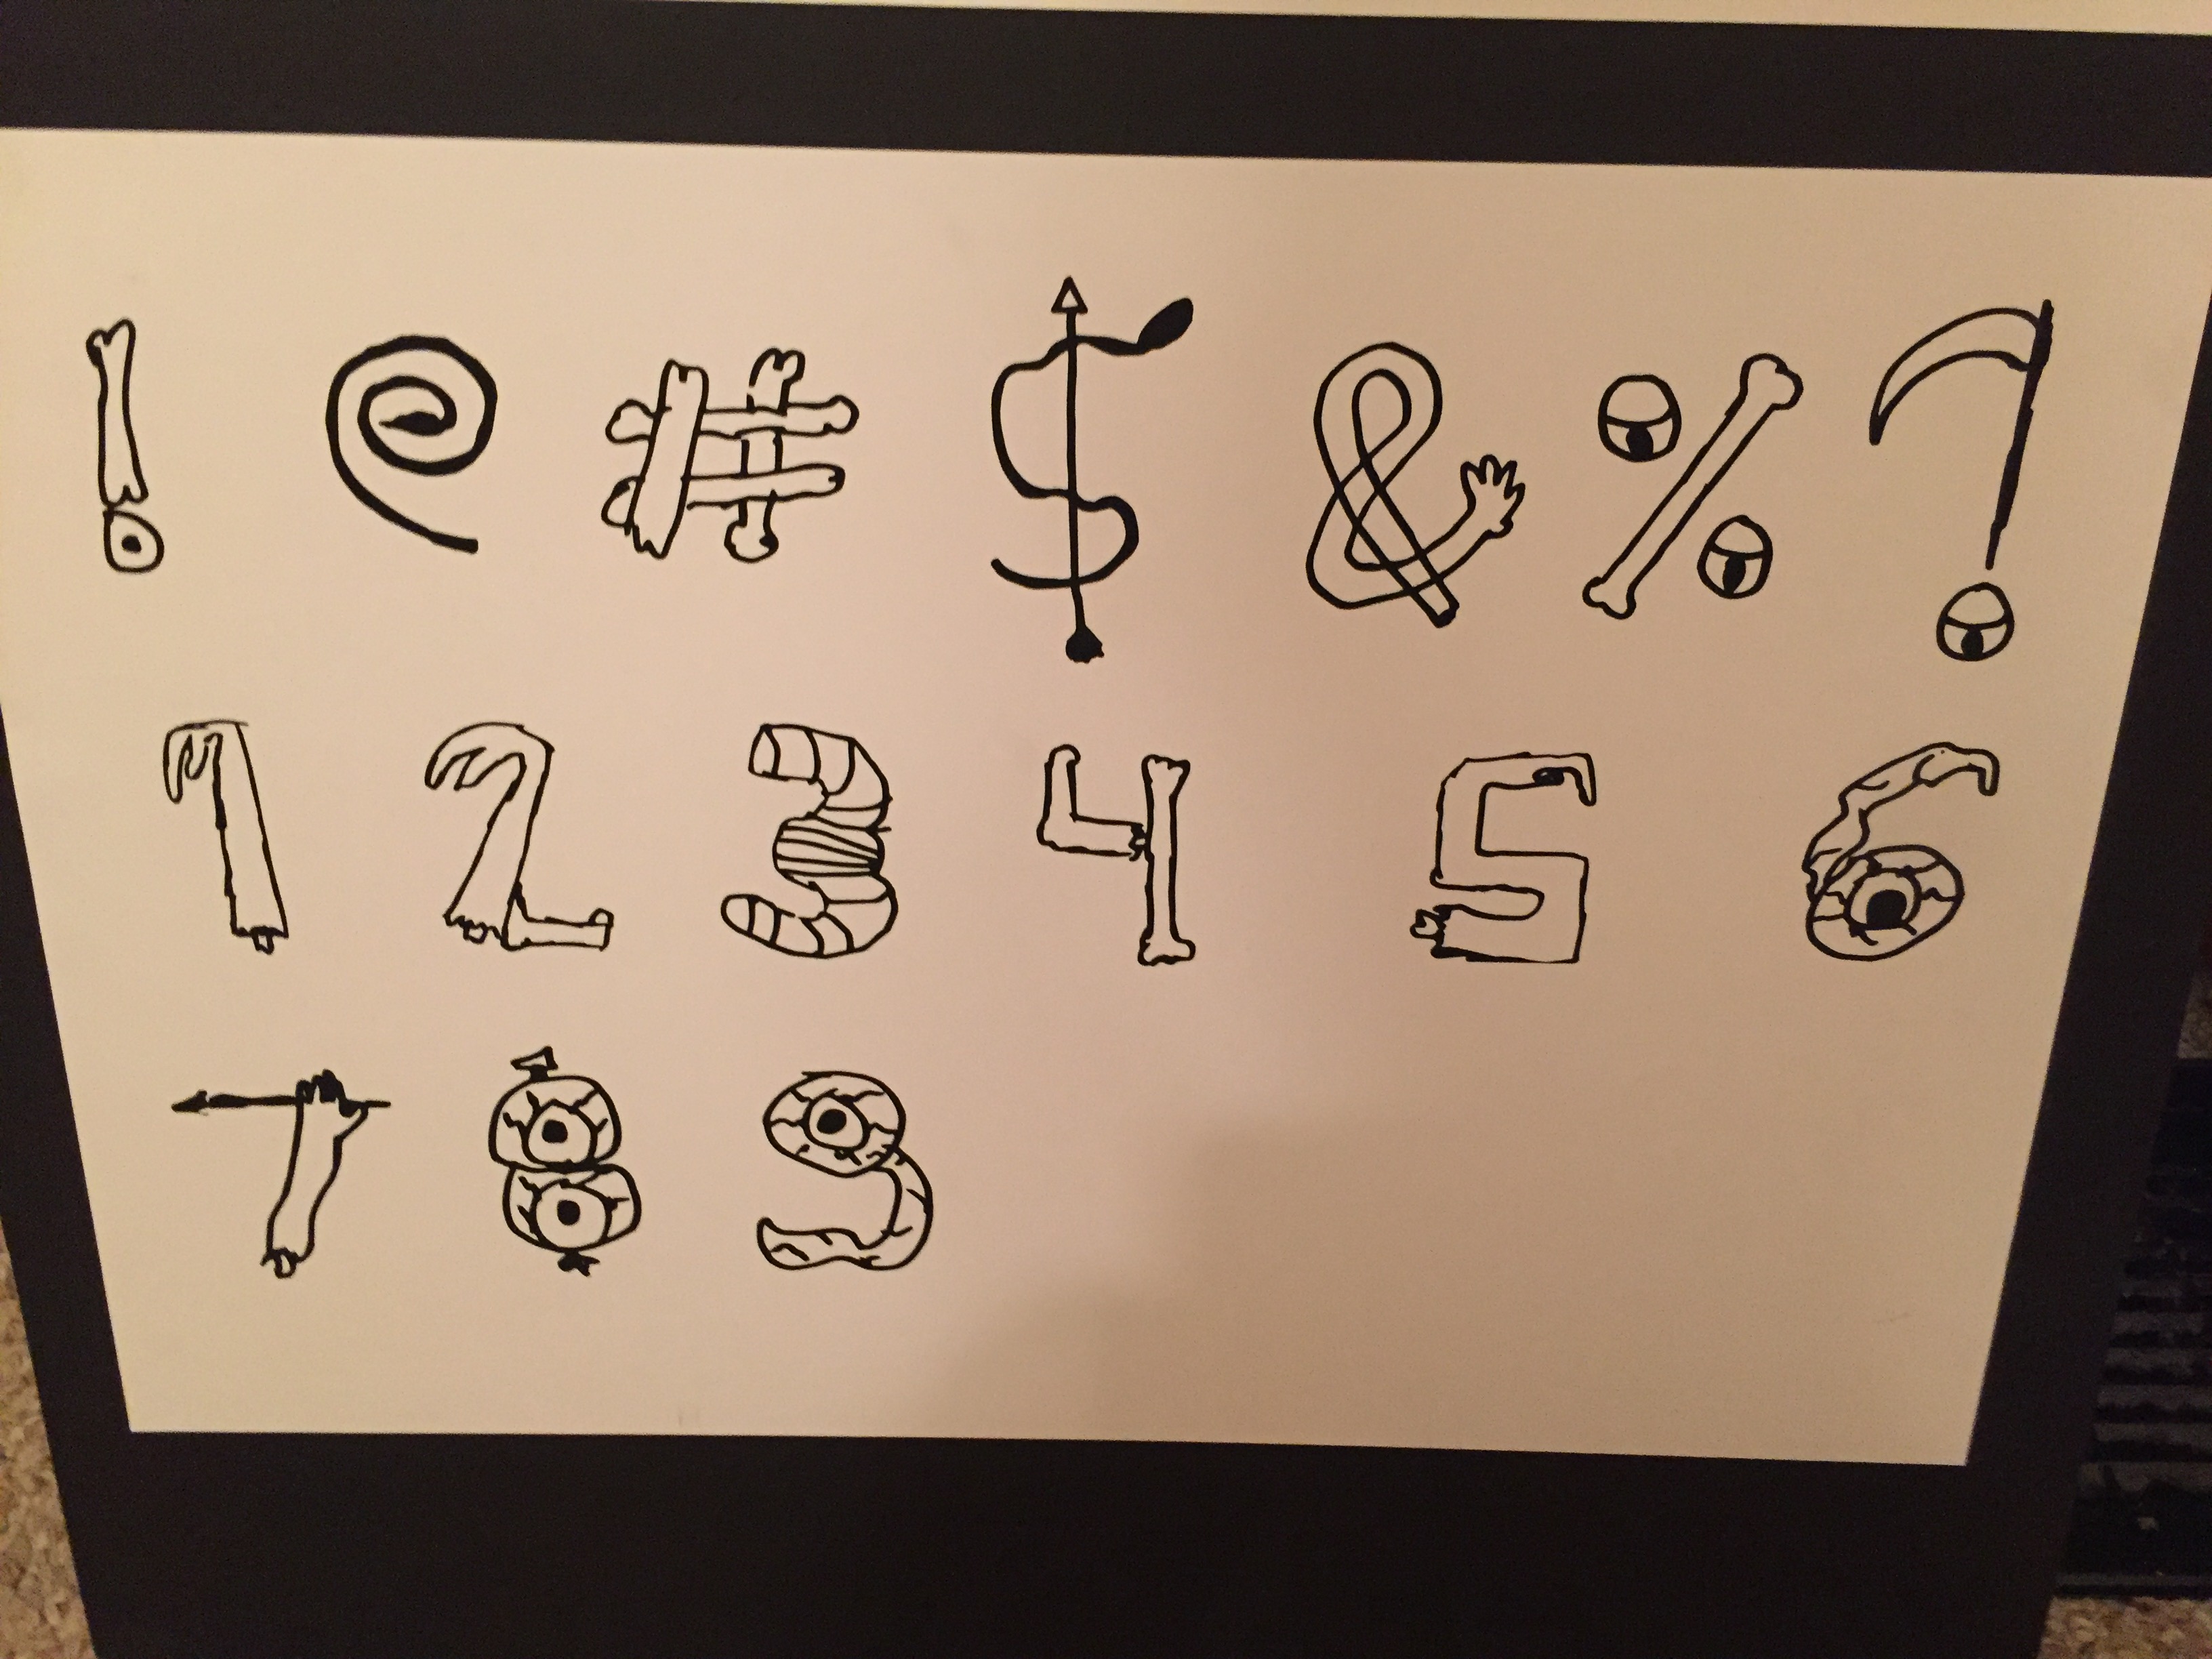 ! @ # $ & % ?
1 2 3 4 5 6
7 8 9